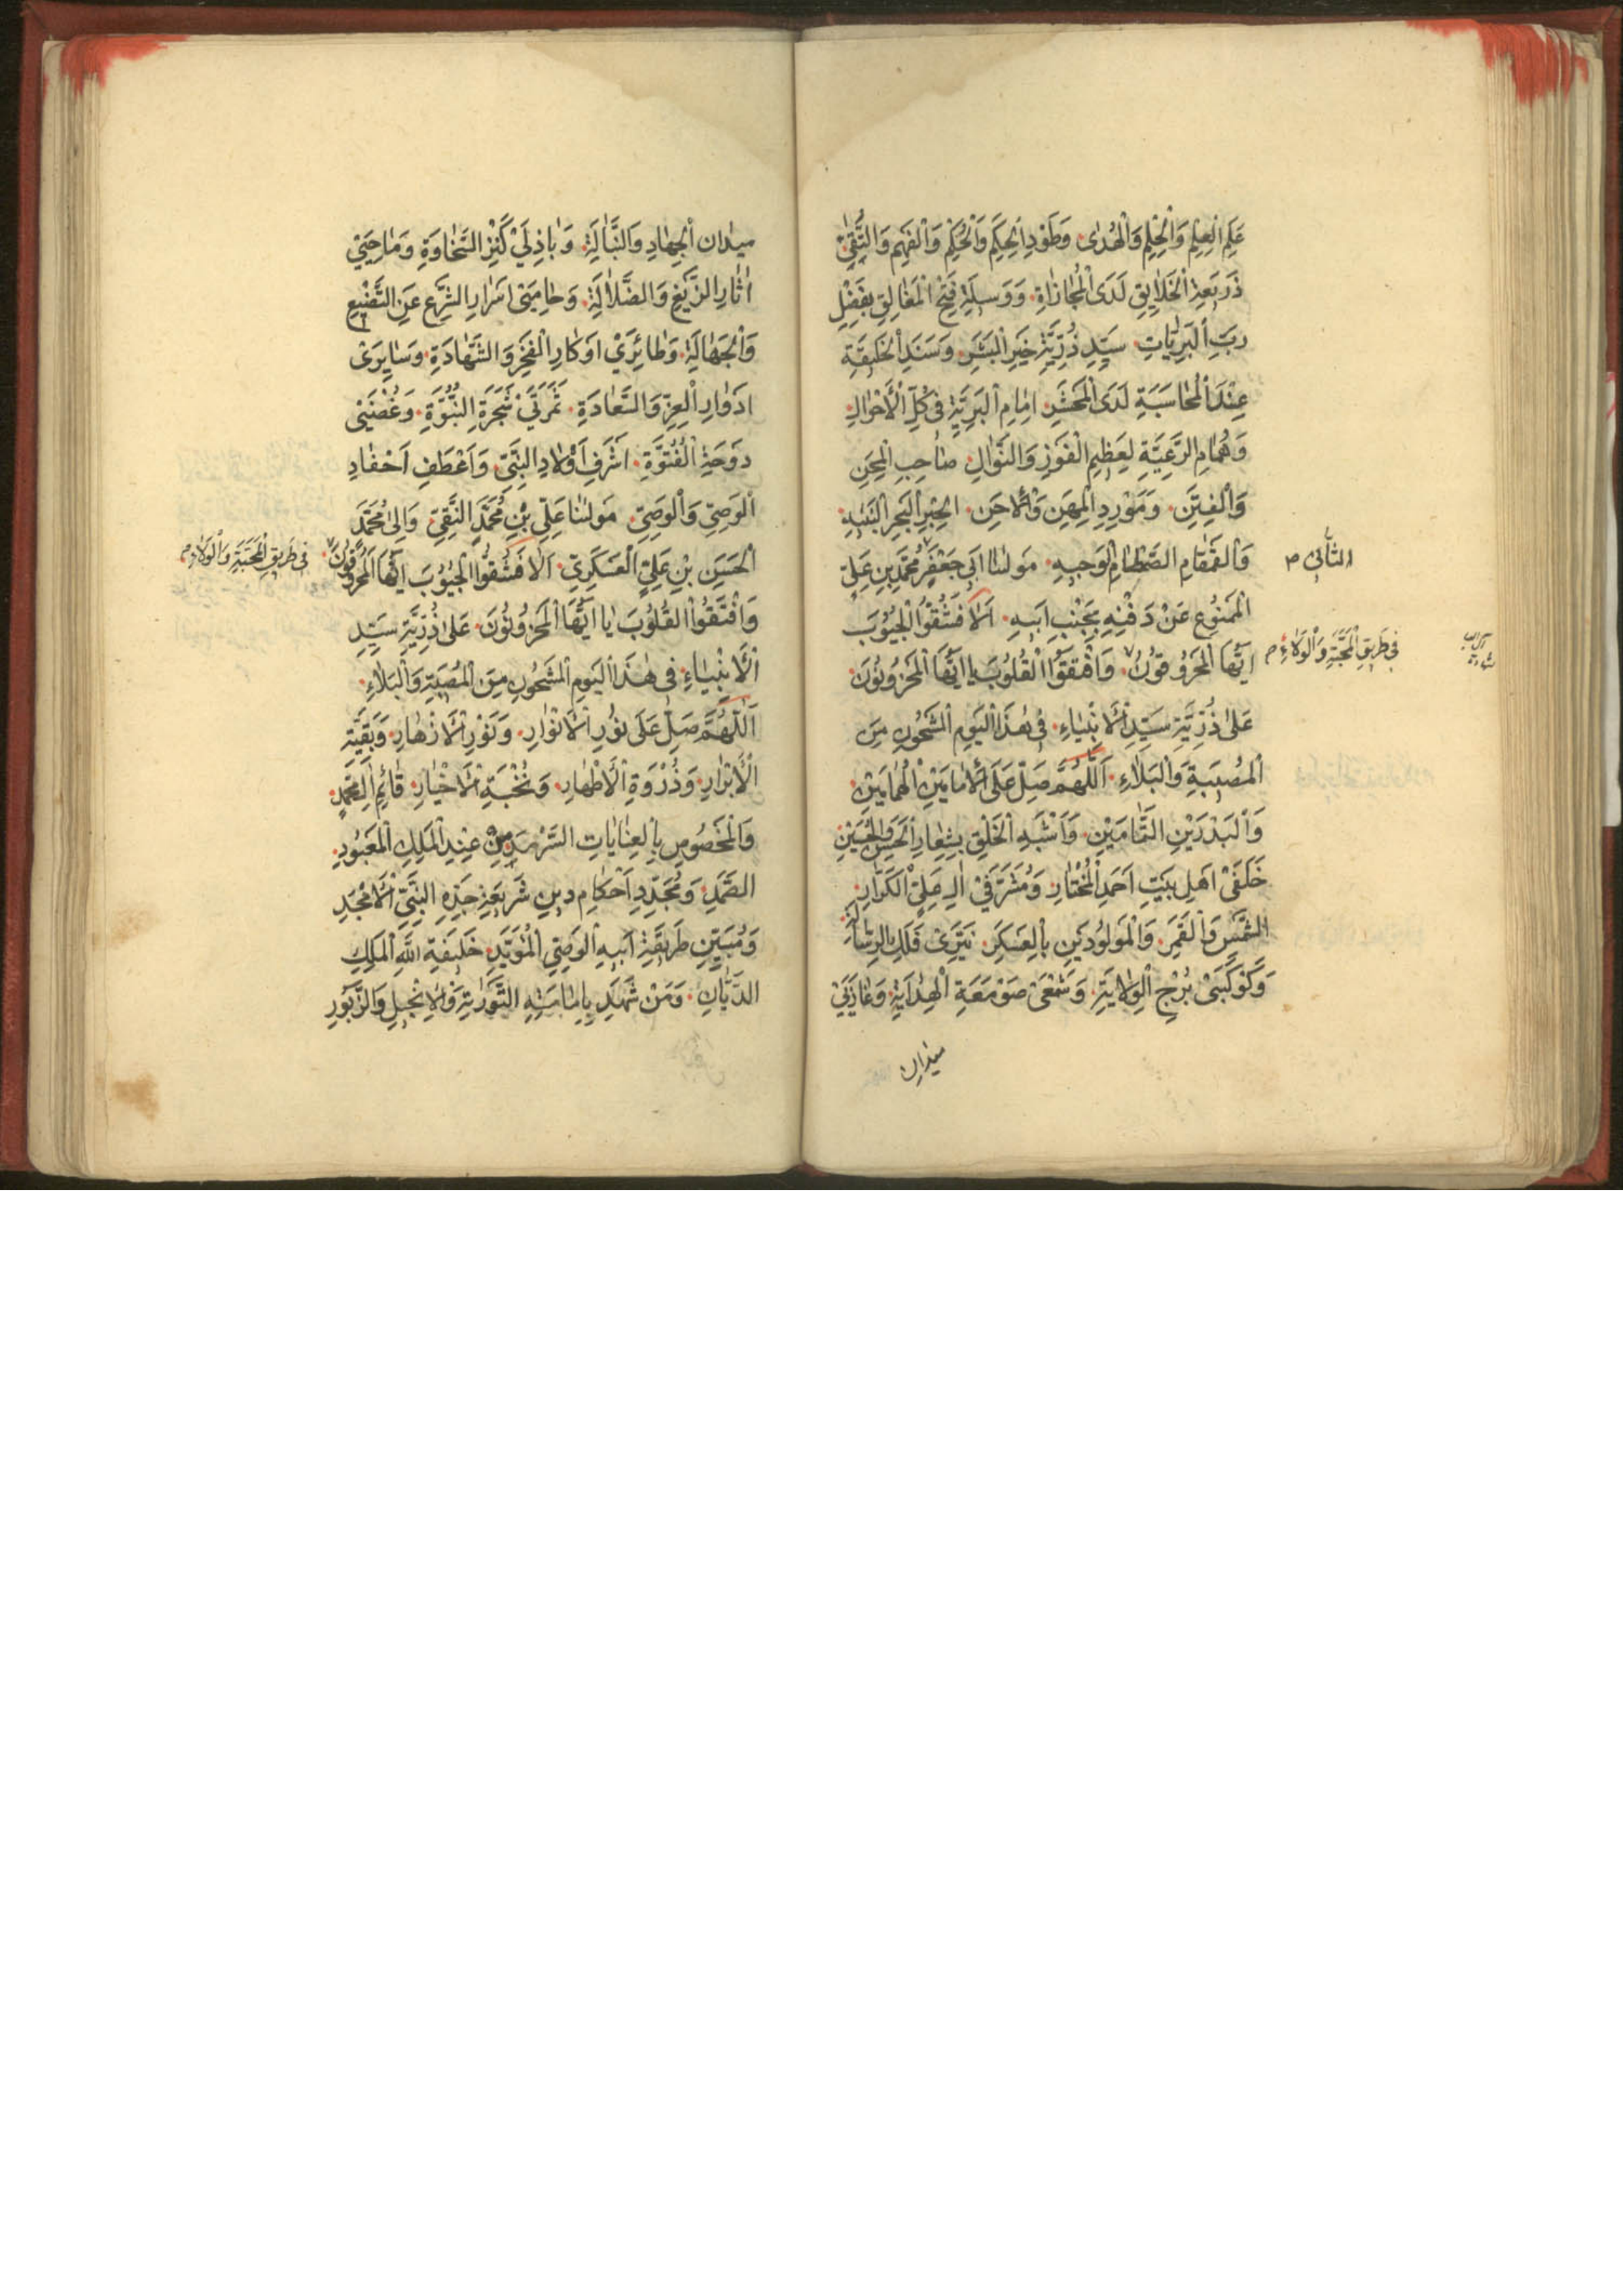 عَلَمِ الْعِلْمِ وَالْحِلْمِ وَالْهُدٰى وَطَوْدِ الْحِكَمِ وَالْحُكْمِ وَالْفَهْمِ وَالتُّقٰى
ذَرِيعَةِ الْخَلَايِقِ لَدَى الْمُجَازَاةِ وَوَسِيلَةِ فَتْحِ الْمَغَالِقِ بِفَضْلِ
رَبِّ الْبَرِيَّاتِ سَيِّدِ ذُرِّيَّةِ خَيْرِ الْبَشَرِ وَسَنَدِ الْخَلِيقَةِ
عِنْدَ الْمُحَاسَبَةِ لَدَى الْمَحْشَرِ اِمَامِ الْبَرِيَّةِ فِى كُلِّ الْأَحْوَالِ
وَهُمَامِ الرَّعِيَّةِ لِعَظِيمِ الْفَوْزِ وَالنَّوَالِ صَاحِبِ الْمِحَنِ
وَالْفِتَنِ وَمَوْرِدِ الْمِهَنِ وَالْاِحَنِ الْحِبْرِ الْبَحْرِ النَّبِيهِ
وَالْقَمْقَامِ الصَّمْطَامِ الْوَجِيهِ مَوْلٰنَا اَبِى جَعْفَرٍ مُحَمَّدِ بْنِ عَلِىٍّ
الثَّانِى ص
الْمَمْنُوعِ عَنْ دَفْنِهِ بِجَنْبِ اَبِيهِ اَلَا فَشُقُّوا الْجُيُوبَ
اَيُّهَا الْمَحْرُوقُونَ وَافْتُقُوا الْقُلُوبَ يَا اَيُّهَا الْمَحْزُونُونَ
فِى طَرِيقِ الْمَحَبَّةِ وَالْوَلَاءِ م
عَلٰى ذُرِّيَّةِ سَيِّدِ الْأَنْبِيَاءِ فِى هٰذَا الْيَوْمِ الْمَشْحُونِ مِنَ
الْمُصِيبَةِ وَالْبَلَاءِ اَللّٰهُمَّ صَلِّ عَلَى الْاِمَامَيْنِ الْهُمَامَيْنِ
وَالْبَدْرَيْنِ التَّمَامَيْنِ وَاَشْبَهِ الْخَلْقِ بِشِعَارِ الْحَسَنِ وَالْحُسَيْنِ
خَلَفَىْ اَهْلِ بَيْتِ اَحْمَدِ الْمُخْتَارِ وَمُشَرَّفَىْ اٰلِ عَلِىٍّ الْكَرَّارِ
الشَّمْسِ وَالْقَمَرِ وَالْمَوْلُودَيْنِ بِالْعَسْكَرِ نَيِّرَىْ فَلَكِ الرِّسَالَةِ
وَكَوْكَبَىْ بُرْجِ الْوِلَايَةِ وَشَمْعَىْ صَوْمَعَةِ الْهِدَايَةِ وَغَازِيَىْ
ميدان
ميدان الْجِهَادِ وَالنَّبَالَةِ وَبَاذِلَىْ كَنْزِ السَّخَاوَةِ وَمَاحِيَىْ
اٰثَارِ الزَّيْغِ وَالضَّلَالَةِ وَحَامِيَىْ اَسْرَارِ الشَّرْعِ عَنِ التَّضْيِيعِ
وَالْجَهَالَةِ وَطَائِرَىْ اَوْكَارِ الْفَخْرِ وَالشَّهَادَةِ وَسَايِرَىْ
اَدْوَارِ الْعِزِّ وَالسَّعَادَةِ ثَمَرَتَىْ شَجَرَةِ النُّبُوَّةِ وَغُصْنَىْ
دَوْحَةِ الْفُتُوَّةِ اَشْرَفِ اَوْلَادِ النَّبِىِّ وَاَعْطَفِ اَحْفَادِ
الْوَصِىِّ وَالْوَصِىِّ مَوْلٰنَا عَلِىِّ بْنِ مُحَمَّدٍ النَّقِىِّ وَاَبِى مُحَمَّدٍ
الْحَسَنِ بْنِ عَلِىٍّ الْعَسْكَرِىِّ اَلَا فَشُقُّوا الْجُيُوبَ اَيُّهَا الْمَحْرُوقُونَ
فِى طَرِيقِ الْمَحَبَّةِ وَالْوَلَاءِ م
وَافْتُقُوا الْقُلُوبَ يَا اَيُّهَا الْمَحْزُونُونَ عَلٰى ذُرِّيَّةِ سَيِّدِ
الْأَنْبِيَاءِ فِى هٰذَا الْيَوْمِ الْمَشْحُونِ مِنَ الْمُصِيبَةِ وَالْبَلَاءِ
اَللّٰهُمَّ صَلِّ عَلٰى نُورِ الْأَنْوَارِ وَنَوْرِ الْأَزْهَارِ وَبَقِيَّةِ
الْأَبْرَارِ وَذُرْوَةِ الْأَطْهَارِ وَنُخْبَةِ الْأَخْيَارِ قَائِمِ اٰلِ مُحَمَّدٍ
وَالْمَخْصُوصِ بِالْعِنَايَاتِ السَّرْمَدِ مِنْ عِنْدِ الْمَلِكِ الْمَعْبُودِ
الصَّمَدِ وَمُجَدِّدِ اَحْكَامِ دِينِ شَرِيعَةِ جَدِّهِ النَّبِىِّ الْأَمْجَدِ
وَمُبَيِّنِ طَرِيقَةِ اَبِيهِ الْوَصِىِّ الْمُؤَيَّدِ خَلِيفَةِ اللّٰهِ الْمَلِكِ
الدَّيَّانِ وَمَنْ شَهِدَ بِاِمَامَتِهِ التَّوْرٰيةِ وَالْاِنْجِيلِ وَالزَّبُورِ